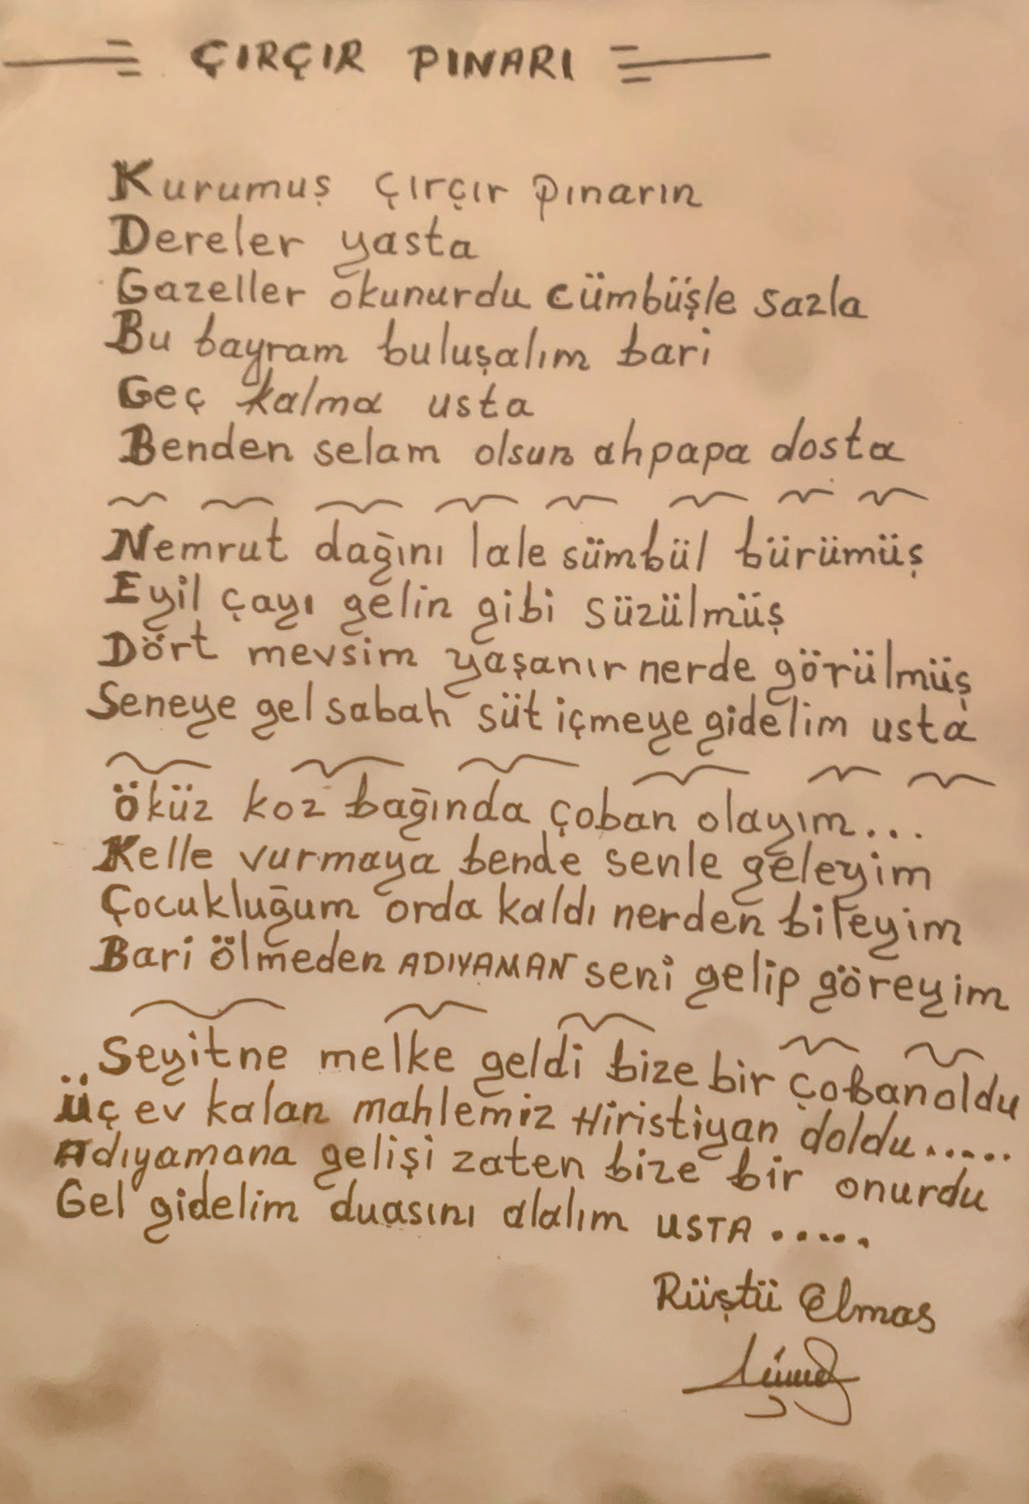 ÇIRÇIR PINARI
Kurumuş çırçır pınarın
Dereler yasta
Gazeller okunurdu cümbüşle sazla
Bu bayram buluşalım bari
Geç kalma usta
Benden selam olsun ahpapa dosta
Nemrut dağını lale sümbül bürümüş
Eyil çayı gelin gibi süzülmüş
Dört mevsim yaşanır nerde görülmüş
Seneye gel sabah süt içmeye gidelim usta
Öküz koz bağında çoban olayım...
Kelle vurmaya bende senle geleyim
Çocukluğum orda kaldı nerden bileyim
Bari ölmeden ADIYAMAN seni gelip göreyim
Seyitne melke geldi bize bir çoban oldu
Üç ev kalan mahlemiz Hiristiyan doldu.....
Adıyamana gelişi zaten bize bir onurdu
Gel gidelim duasını alalım USTA.....
Rüştü Elmas